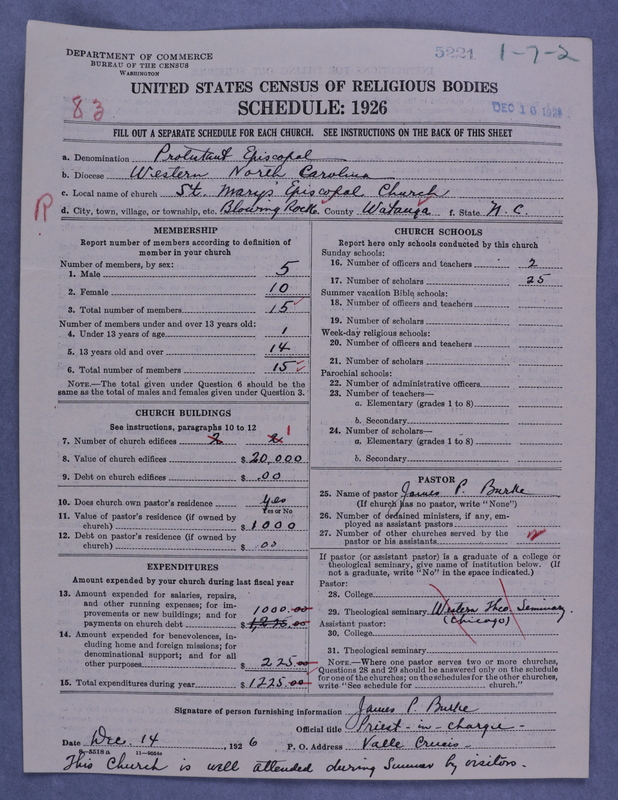 5221 1-7-2
DEPARTMENT OF COMMERCE
BUREAU OF THE CENSUS
WASHINGTON
UNITED STATES CENSUS OF RELIGIOUS BODIES
83
SCHEDULE: 1926
DEC 16 1926
FILL OUT A SEPARATE SCHEDULE FOR EACH CHURCH. SEE INSTRUCTIONS ON THE BACK OF THIS SHEET
a. Denomination Protestant Episcopal
b. Diocese Western North Carolina
c. Local name of church St. Mary's Episcopal Church
R
d. City, town, village, or township, etc. Blowing Rock. County Watauga f. State N. C.
MEMBERSHIP
Report number of members according to definition of
member in your church
Number of members, by sex:
1. Male 5
2. Female 10
3. Total number of members 15
Number of members under and over 13 years old:
4. Under 13 years of age 1
5. 13 years old and over 14
6. Total number of members 15
NOTE.—The total given under Question 6 should be the
same as the total of males and females given under Question 3.
CHURCH BUILDINGS
See instructions, paragraphs 10 to 12
7. Number of church edifices 2 2 1
8. Value of church edifices $ 20,000
9. Debt on church edifices $ .00
10. Does church own pastor's residence yes
Yes or No
11. Value of pastor's residence (if owned by
church) $ 1000
12. Debt on pastor's residence (if owned by
church) $ .00
EXPENDITURES
Amount expended by your church during last fiscal year
13. Amount expended for salaries, repairs,
and other running expenses; for im-
provements or new buildings; and for 1000.00
payments on church debt $ 1,225.00
14. Amount expended for benevolences, in-
cluding home and foreign missions; for
denominational support; and for all
other purposes $ 225.00
15. Total expenditures during year $ 1225.00
CHURCH SCHOOLS
Report here only schools conducted by this church
Sunday schools:
16. Number of officers and teachers 2
17. Number of scholars 25
Summer vacation Bible schools:
18. Number of officers and teachers
19. Number of scholars
Week-day religious schools:
20. Number of officers and teachers
21. Number of scholars
Parochial schools:
22. Number of administrative officers
23. Number of teachers—
a. Elementary (grades 1 to 8)
b. Secondary
24. Number of scholars—
a. Elementary (grades 1 to 8)
b. Secondary
PASTOR
25. Name of pastor James P. Burke
(If church has no pastor, write "None")
26. Number of ordained ministers, if any, em-
ployed as assistant pastors
27. Number of other churches served by the
pastor or his assistants
If pastor (or assistant pastor) is a graduate of a college or
theological seminary, give name of institution below. (If
not a graduate, write "No" in the space indicated.)
Pastor:
28. College
29. Theological seminary Western Theo. Seminary.
Assistant pastor: (Chicago)
30. College
31. Theological seminary
NOTE.—Where one pastor serves two or more churches,
Questions 28 and 29 should be answered only on the schedule
for one of the churches; on the schedules for the other churches,
write "See schedule for church."
Signature of person furnishing information James P. Burke
Official title Priest-in-charge-
Date Dec. 14, 1926 P. O. Address Valle Crucis-
This Church is well attended during Summer by visitors.